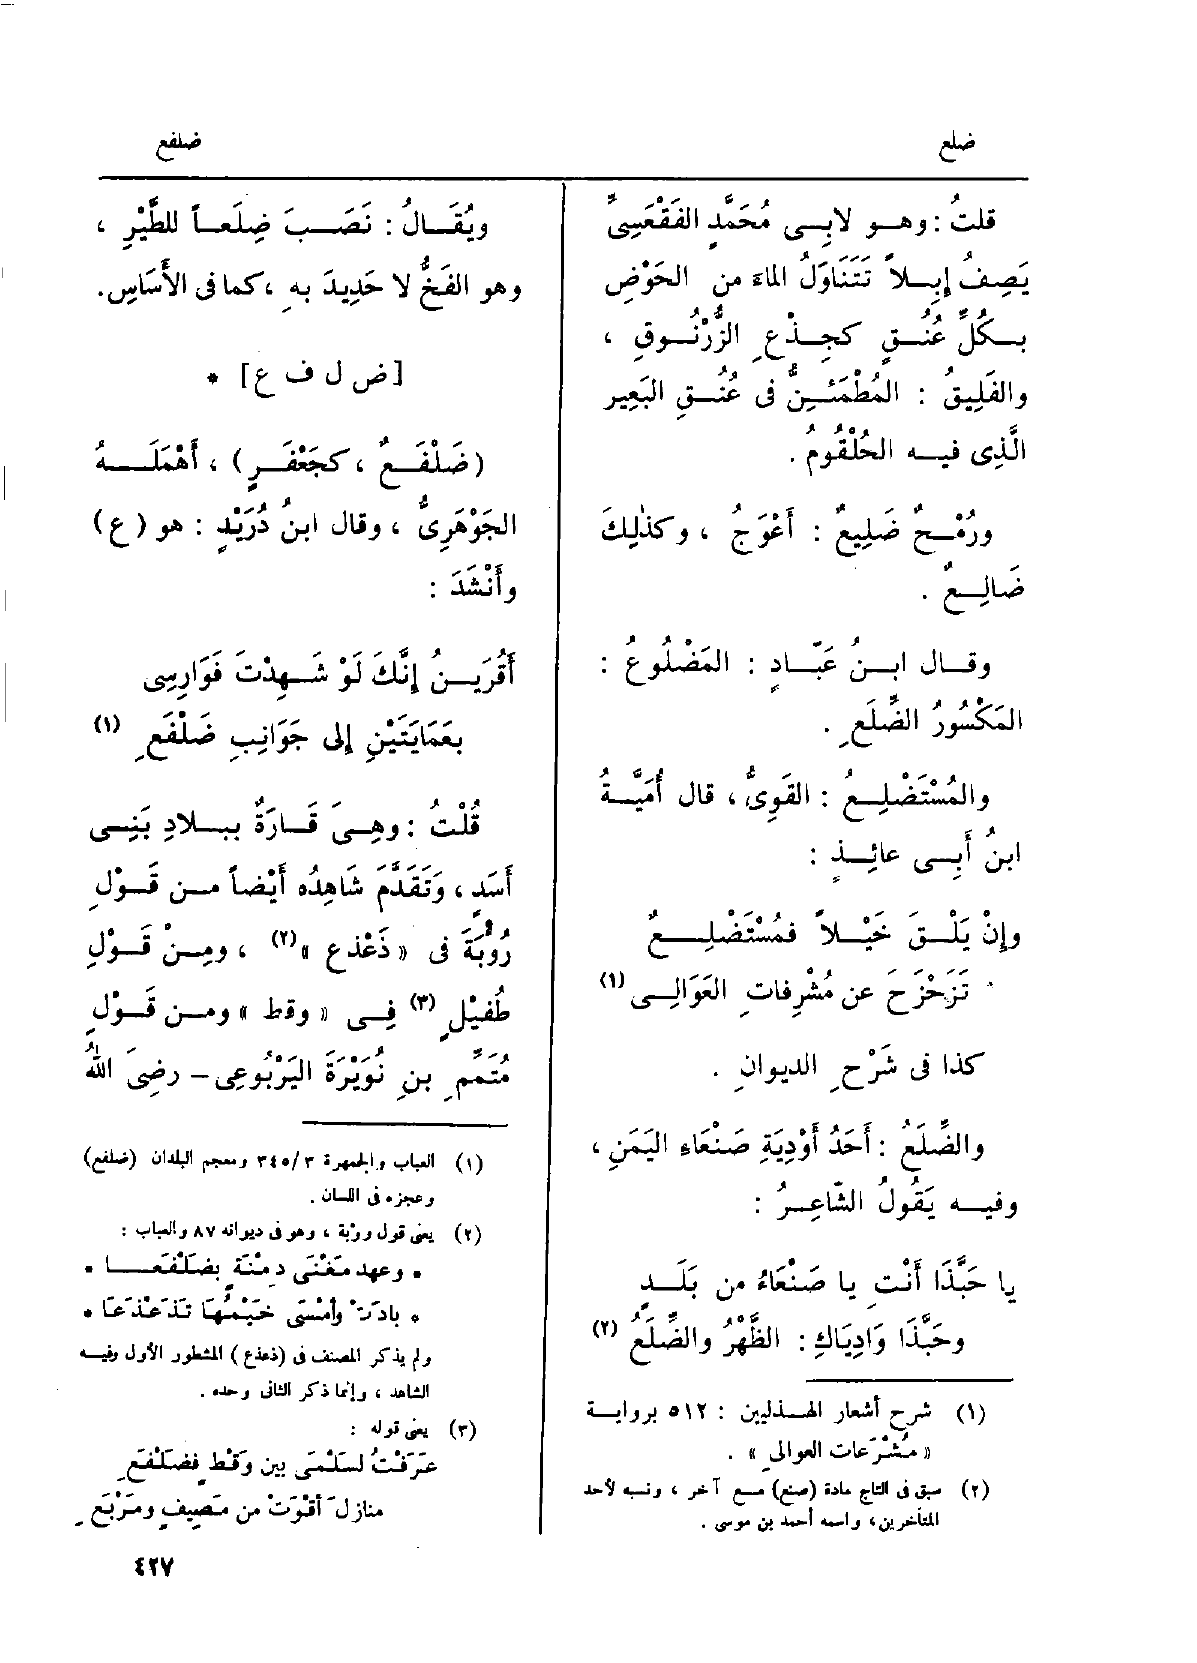 ضلع
ضلفع
قلتُ : وهــو لابِــى مُحَمَّدٍ الفَقْعَسِىِّ
يَصِفُ إِبِــلاً تَتَنَاوَلُ الماءَ من الحَوْضِ
بــكُلِّ عُنُــقٍ كجِــذْعِ الزُّرْنُــوقِ ،
والفَلِيقُ : المُطْمَئِــنُّ فى عُنُــقِ البَعِير
الَّذِى فيــه الحُلْقُومُ .
ورُمْــحٌ ضَلِيعٌ : أَعْوَجُ ، وكذٰلِكَ
ضَالِــعٌ .
وقــال ابــنُ عَبّــادٍ : المَضْلُوعُ :
المَكْسُورُ الضِّلَعِ .
والمُسْتَضْلِــعُ : القَوِىُّ ، قال أُمَيَّــةُ
ابنُ أَبِــى عائِــذٍ :
وإِنْ يَلْــقَ خَيْــلاً فمُسْتَضْلِــعٌ
تَزَحْزَحَ عن مُشْرِفاتِ العَوَالِــى (١)
كذا فى شَرْحِ الديوانِ .
والضِّلَعُ : أَحَدُ أَوْدِيَةِ صَنْعَاءِ اليَمَنِ ،
وفيــه يَقُولُ الشّاعِــرُ :
يا حَبَّذَا أَنْتِ يا صَنْعَاءُ من بَلَــدٍ
وحَبَّذَا وَادِيَاكِ : الظَّهْرُ والضِّلَعُ (٢)
(١) شرح أشعار الهــذليين : ٥١٢ بروايــة
« مُشْرَعات العوالِى » .
(٢) سبق فى التاج مادة (صنع) مــع آخر ، ونسبه لأحد
المتأخرين، واسمه أحمد بن موسى .
ويُقَــالُ : نَصَــبَ ضِلَعــاً للطَّيْرِ ،
وهو الفَخُّ لا حَدِيدَ بهِ ، كما فى الأَسَاسِ.
[ ض ل ف ع ] *
(ضَلْفَــعٌ ، كجَعْفَــرٍ) ، أَهْمَلَــهُ
الجَوْهَرِىُّ ، وقال ابنُ دُرَيْدٍ : هو (ع)
وأَنْشَدَ :
أَقُرَيــنُ إِنَّكَ لَوْ شَــهِدْتَ فَوَارِسِى
بعَمَايَتَيْنِ إِلى جَوَانِبِ ضَلْفَعِ (١)
قُلْتُ : وهِــىَ قَــارَةٌ ببــلادِ بَنِــى
أَسَد ، وتَقَدَّمَ شاهِدُه أَيْضاً مــن قَــوْلِ
رُؤْبَةَ فى « ذَعْذع » (٢) ، ومِــنْ قَــوْلِ
طُفَيْلٍ (٣) فِــى « وقط » ومــن قَــوْلِ
مُتَمِّمِ بنِ نُوَيْرَةَ اليَرْبُوعِى – رضِىَ اللهُ
(١) العباب والجمهرة ٣/٣٤٥ ومعجم البلدان (ضلفع)
وعجزه فى اللسان .
(٢) يعنى قول رؤبة ، وهو فى ديوانه ٨٧ والعباب :
* وعهد مَغْنَى دِمْنَةٍ بضَلْفَعَــا *
* بادَتْ وأَمْسَى خَيْمُهَا تَذَعْذَعَا *
ولم يذكر المصنف فى (ذعذع) المشطور الأول وفيــه
الشاهد ، وإنما ذكر الثانى وحده .
(٣) يعنى قوله :
عَرَفْتُ لسَلْمَى بين وَقْطٍ فضَلْفَعِ
منازلَ أَقْوَتْ من مَصِيفٍ ومَرْبَعِ
٤٢٧